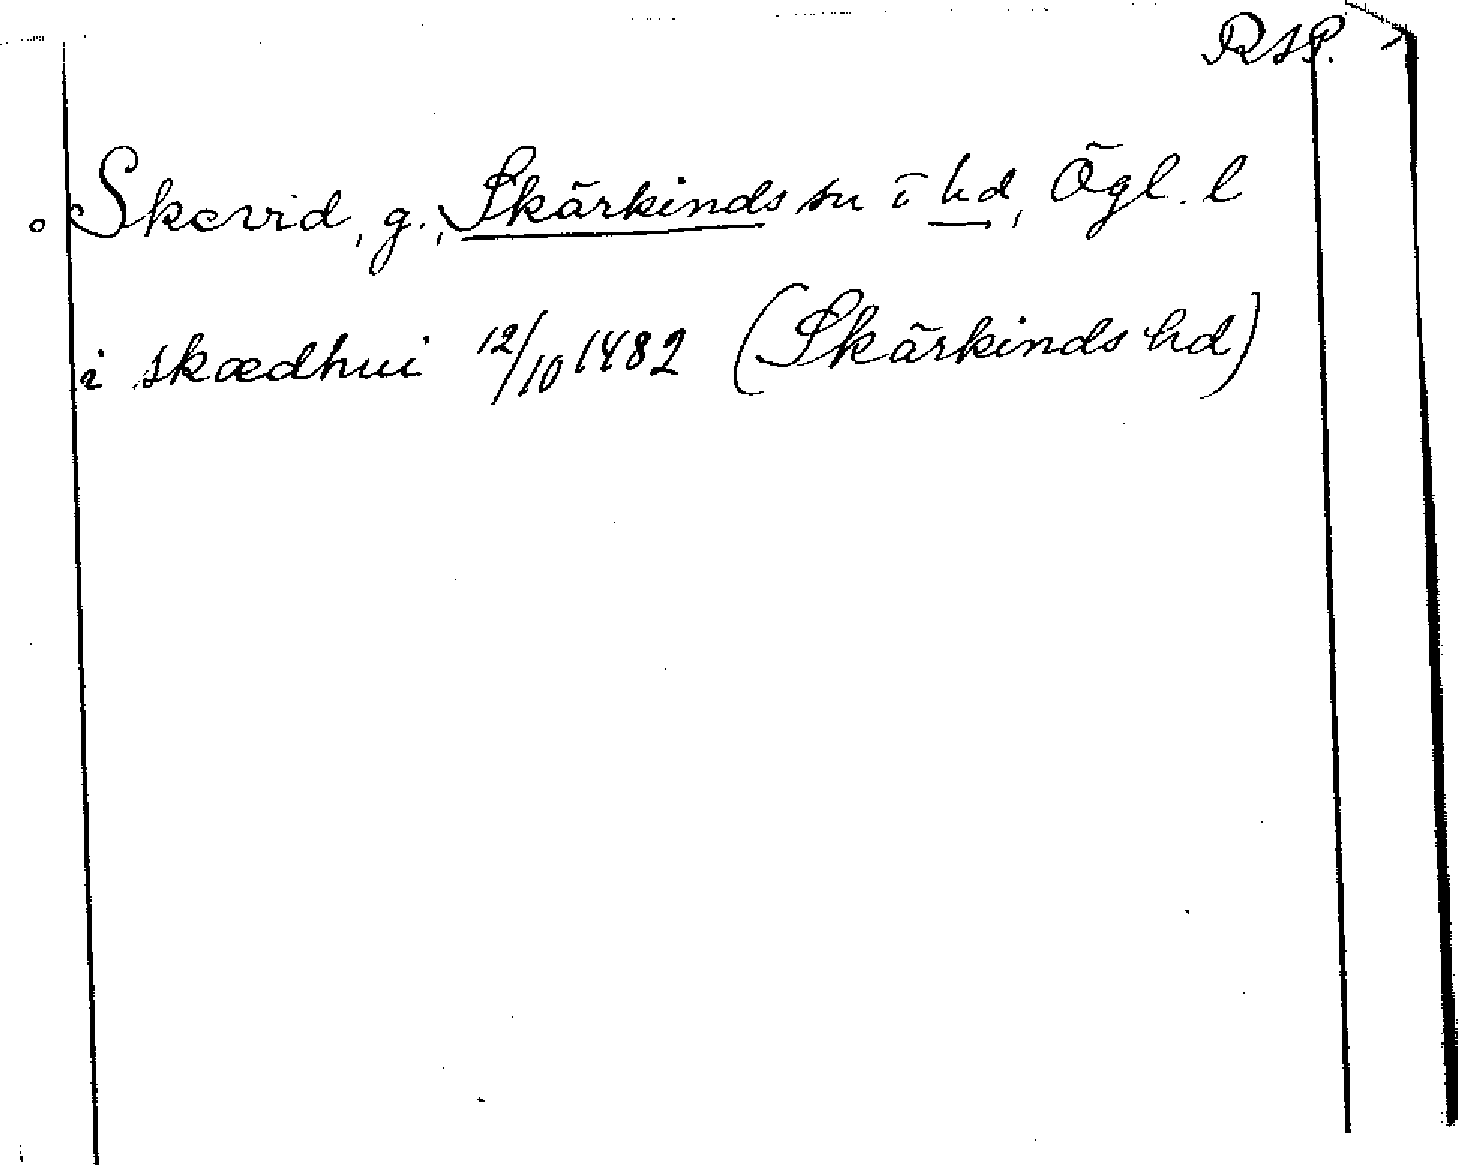 RAP.
Skevid, g., Skärkinds sn o hd, Ögl. l
i skædhui 12/10 1482 (Skärkinds hd)